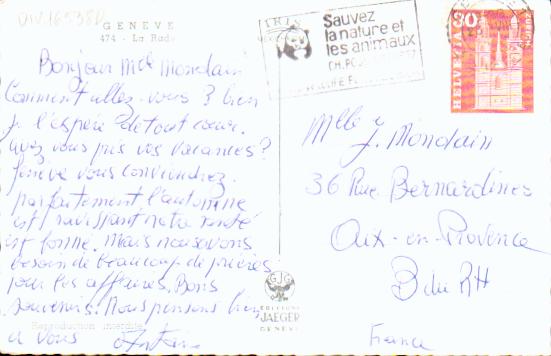 DIV.16538D
GENEVE
474 - La Rade
Bonjour Melle Mondain
Comment allez-vous? bien
je l'espère de tout cœur.
avez vous pris vos vacances?
Genève vous conviendrez
parfaitement l'automne
est ravissant notre santé
est bonne. Mais nous avons
besoin de beaucoup de prières
pour les affaires. Bons
souvenirs. Nous pensons bien
à vous
Reproduction interdite
GJG
EDITIONS
JAEGER
GENEVE
Sauvez
la nature et
les animaux
30
HELVETIA
ZÜRICH
Mlle J. Mondain
36 Rue Bernardines
Aix-en-Provence
B du RH
France